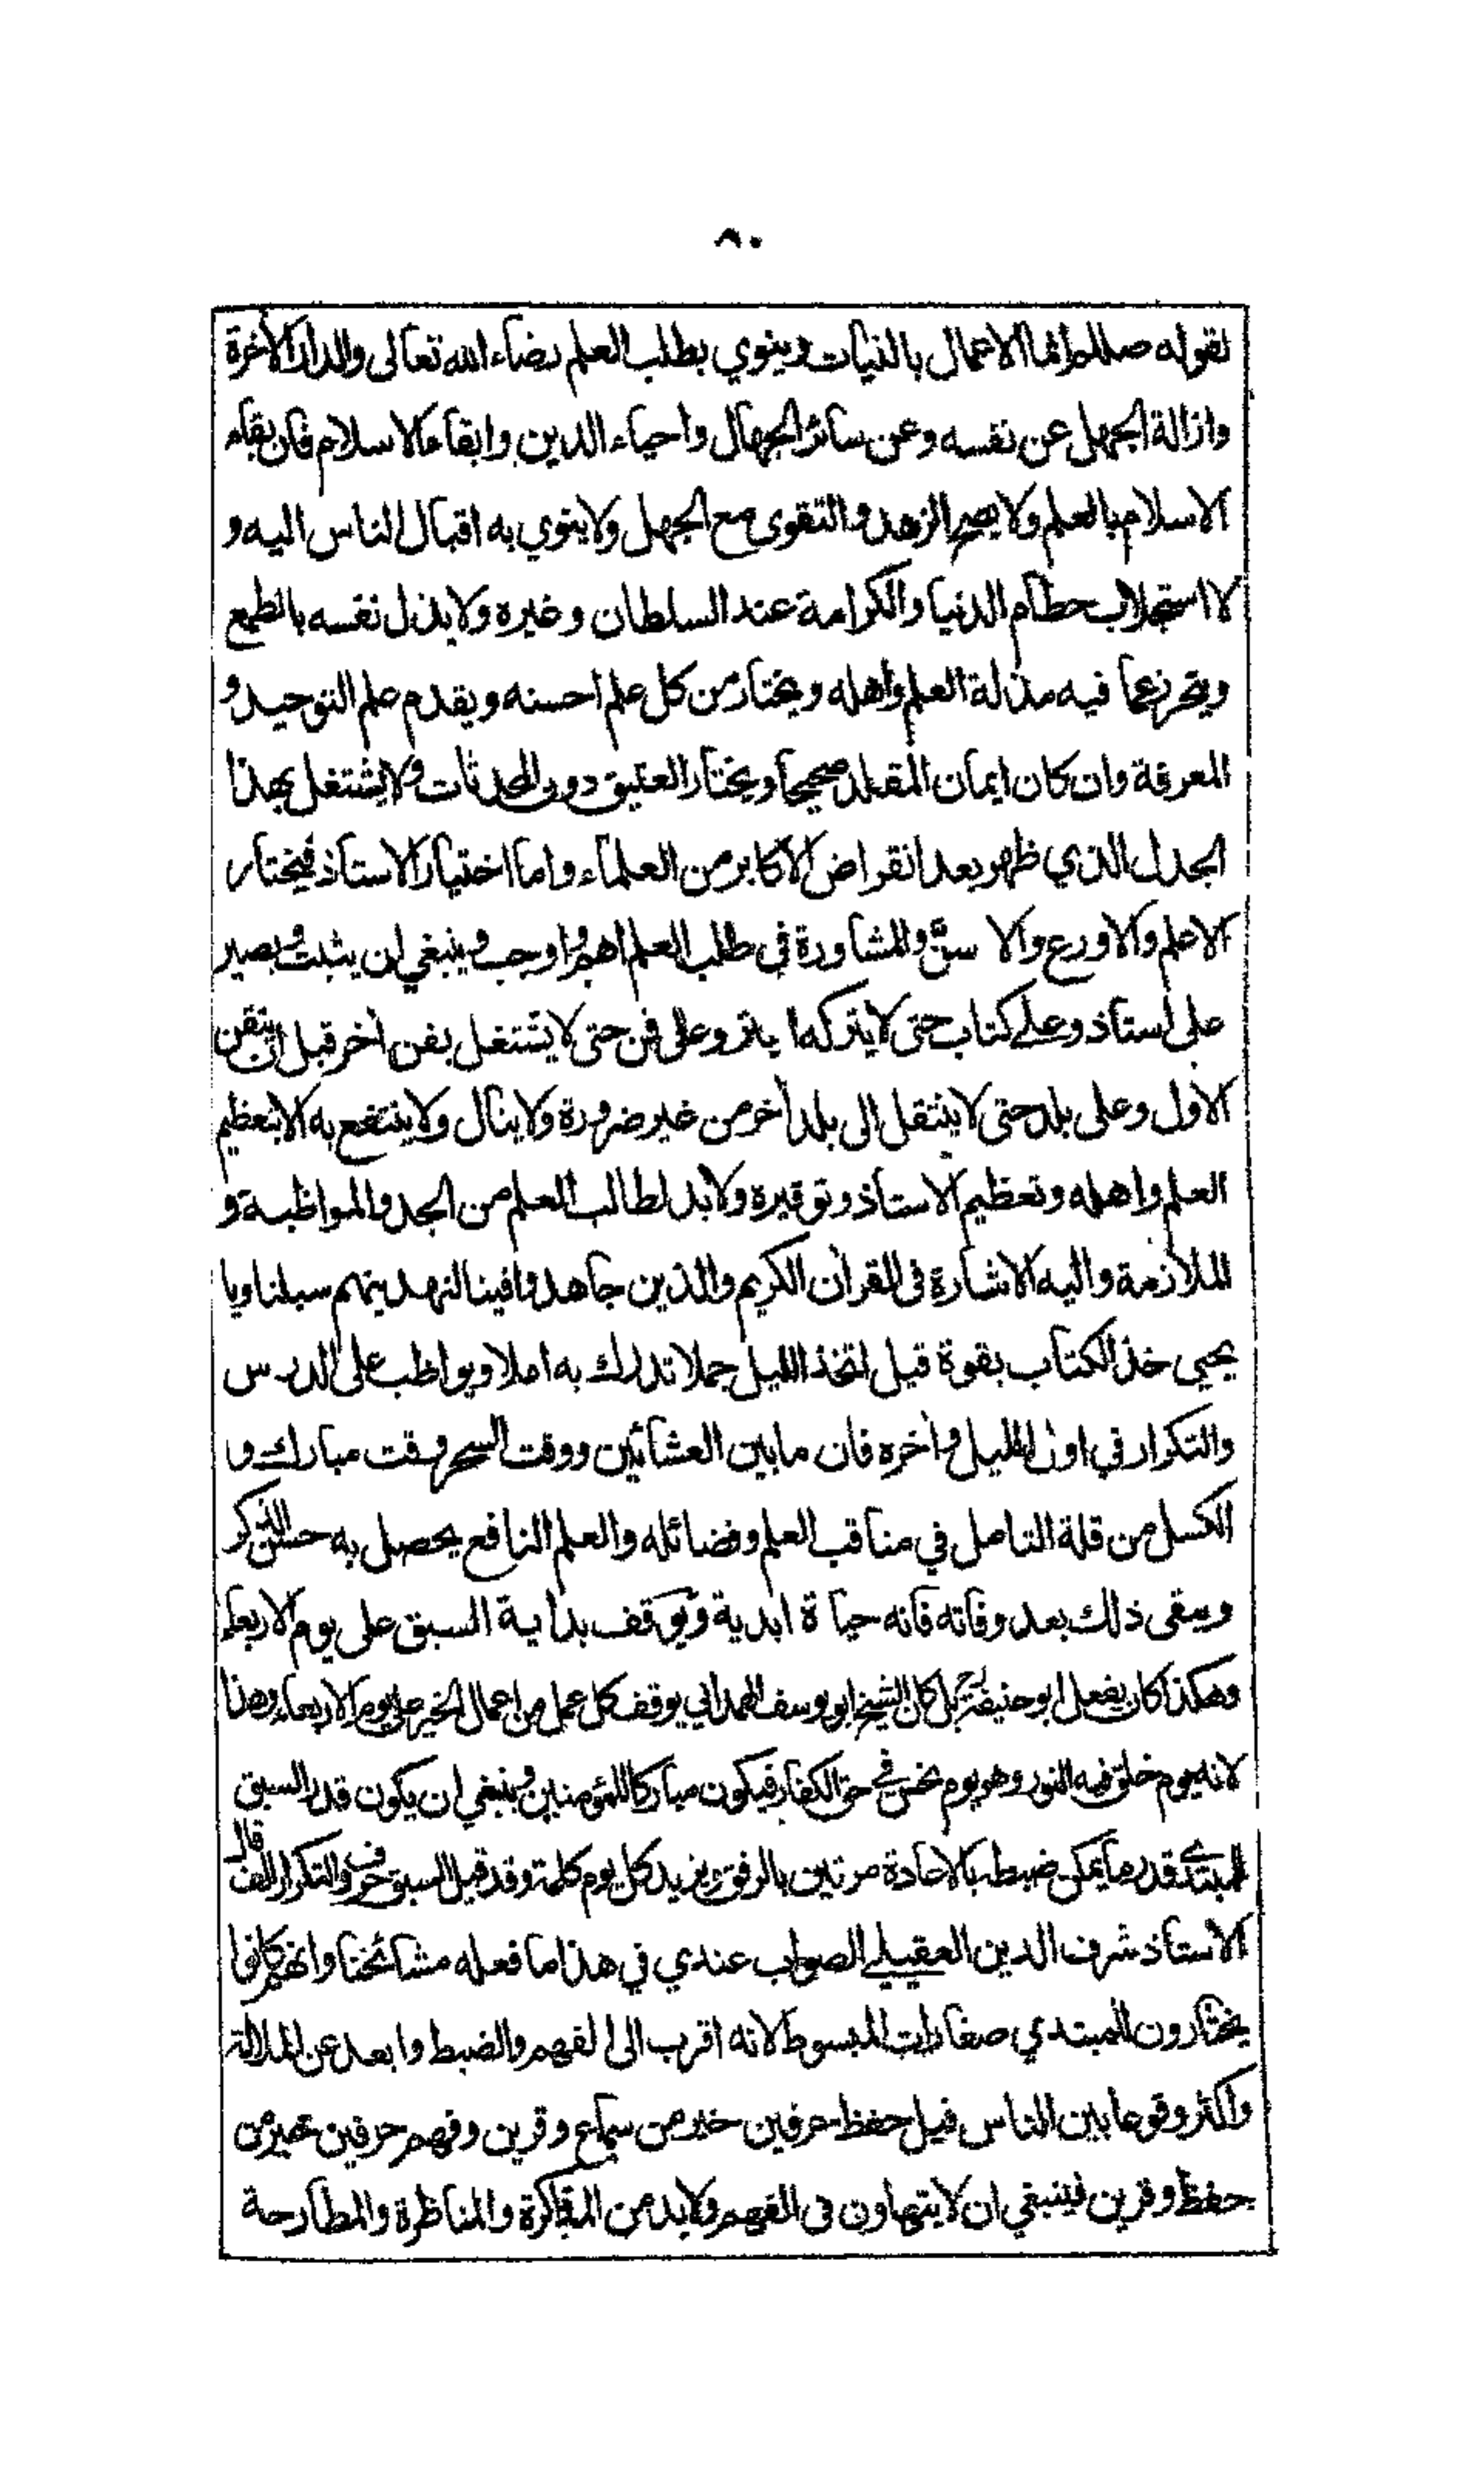 ٨٠
لقوله صللم انما الاعمال بالنيات وينوي بطلب العلم رضاء الله تعالى والدار الآخرة
وازالة الجهل عن نفسه وعن سائر الجهال واحياء الدين وابقاء الاسلام فان بقاء
الاسلام بالعلم ولا يصح الزهد والتقوى مع الجهل ولا ينوي به اقبال الناس اليه و
لا استجلاب حطام الدنيا والكرامة عند السلطان وغيره ولا يذل نفسه بالطمع
ويتحرز عما فيه مذلة العلم واهله ويختار من كل علم احسنه ويقدم علم التوحيد و
المعرفة وان كان ايمان المقلد صحيحا ويختار العتيق دون المحدثات ولا يشتغل بهذا
الجدل الذي ظهر بعد انقراض الاكابر من العلماء واما اختيار الاستاذ فيختار
الاعلم والاورع والا سنّ والمشاورة في طلب العلم اهم واوجب وينبغي ان يثبت ويصير
على استاذ وعلى كتاب حتى لا يتركه ابتر وعلى فن حتى لا يشتغل بفن آخر قبل ان يتقن
الاول وعلى بلد حتى لا ينتقل الى بلد آخر من غير ضرورة ولا ينال ولا ينتفع به الا بتعظيم
العلم واهله وتعظيم الاستاذ وتوقيره ولا بد لطالب العلم من الجد والمواظبة و
الملازمة واليه الاشارة في القرآن الكريم والذين جاهدوا فينا لنهدينهم سبلنا ويا
يحيى خذ الكتاب بقوة قيل اتخذ الليل جملا تدرك به املا ويواظب على الدرس
والتكرار في اول الليل وآخره فان ما بين العشائين ووقت السحر وقت مبارك و
الكسل من قلة التامل في مناقب العلم وفضائله والعلم النافع يحصل به حسن الذكر
ويبقى ذلك بعد وفاته فانه حياة ابدية ويوقف بداية السبق على يوم الاربعاء
وهكذا كان يفعل ابو حنيفة رح بل كان الشيخ ابو يوسف الهمداني يوقف كل عمل من اعمال الخير على يوم الاربعاء وهذا
لانه يوم خلق فيه النور وهو يوم نحس في حق الكفار فيكون مباركا للمؤمنين وينبغي ان يكون قدر السبق
للمبتدي قدر ما يمكن ضبطه بالاعادة مرتين بالرفق ويزيد كل يوم كلمة وقد قيل السبق حرف والتكرار الف قال
الاستاذ شرف الدين العقيلي الصواب عندي في هذا ما فعله مشائخنا وانهم كانوا
يختارون للمبتدي صغارات المبسوط لانه اقرب الى الفهم والضبط وابعد عن الملالة
واكثر وقوعا بين الناس قيل حفظ حرفين خير من سماع وقرين وفهم حرفين خير من
حفظ وقرين فينبغي ان لا يتهاون في الفهم ولا بد من المذاكرة والمناظرة والمطارحة